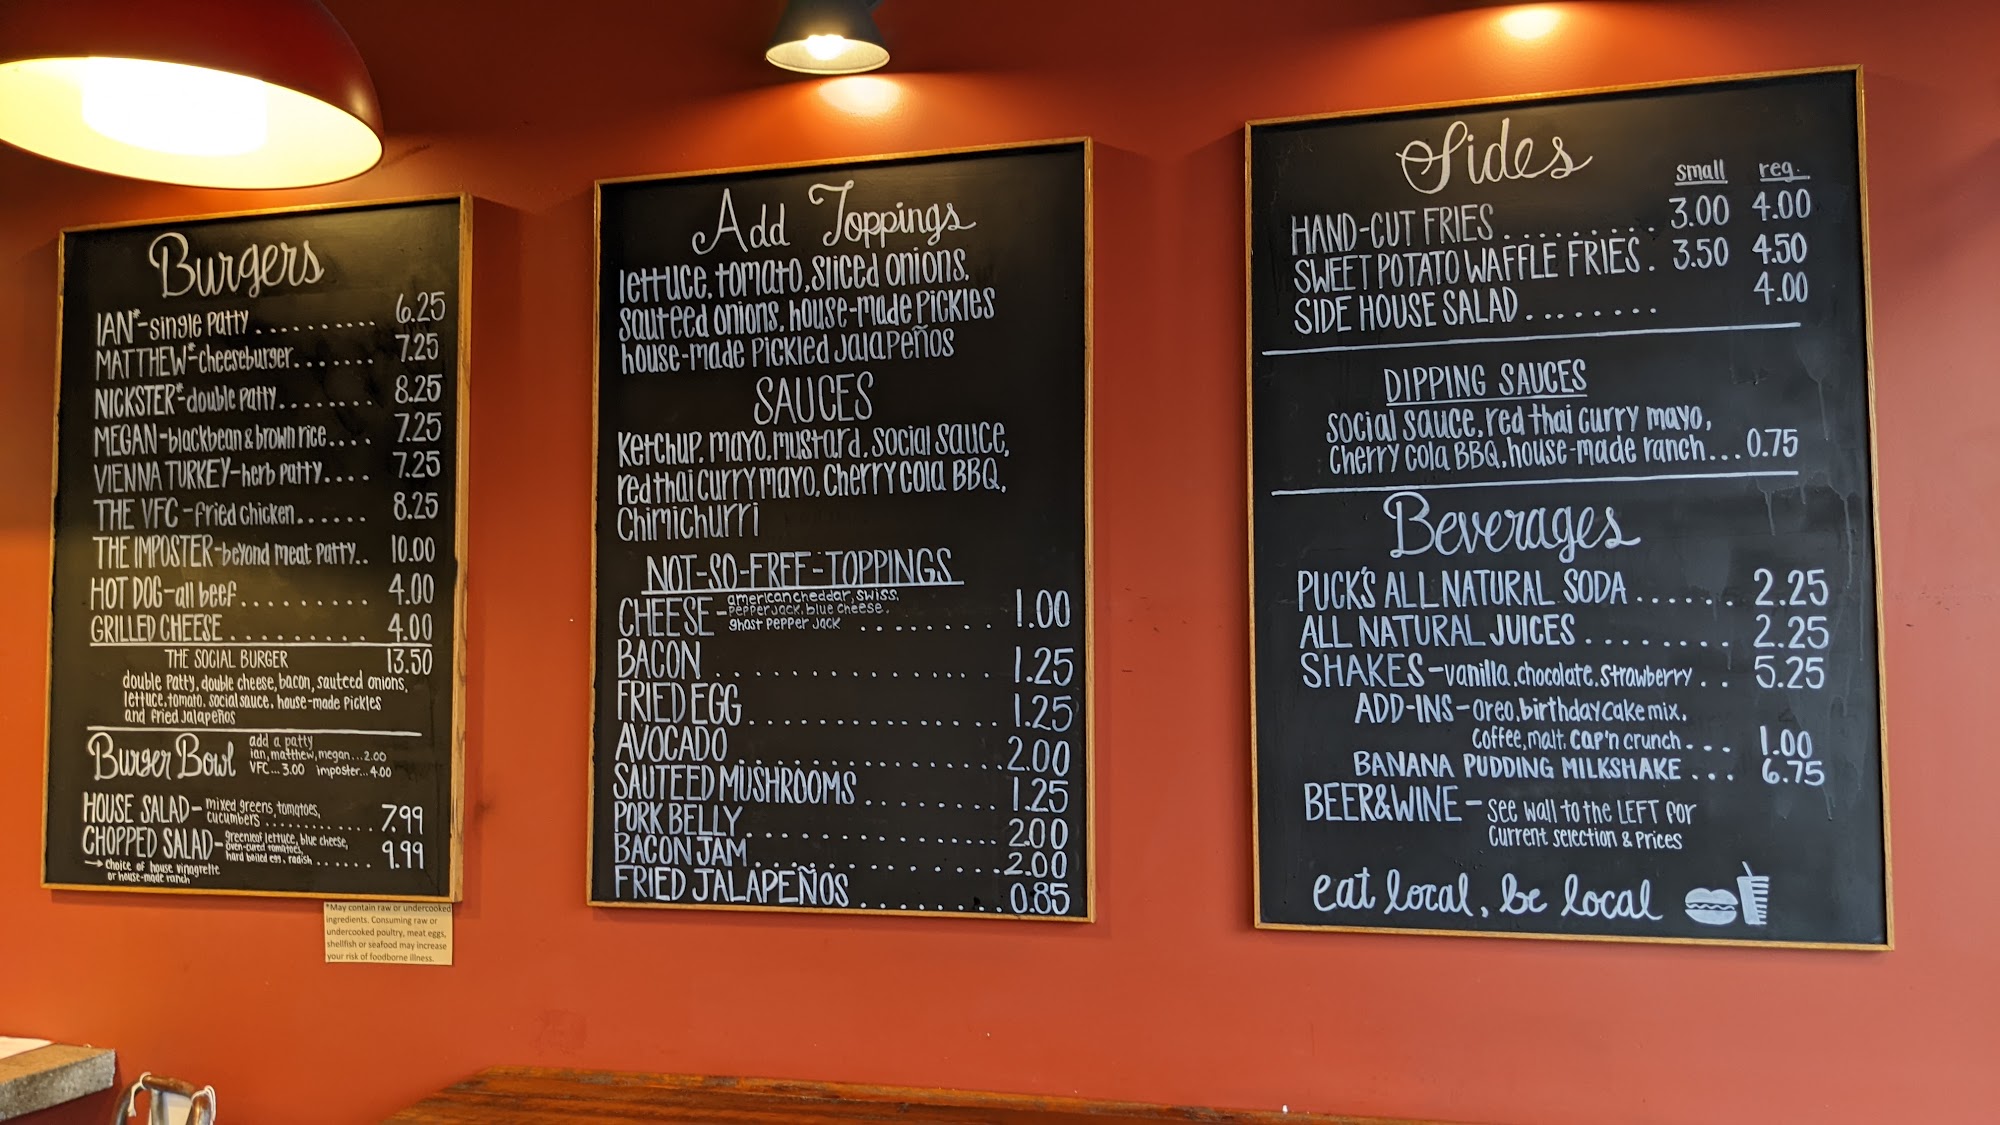 Burgers
IAN*-single patty .......... 6.25
MATTHEW*-cheeseburger....... 7.25
NICKSTER*-double patty........ 8.25
MEGAN-blackbean & brown rice.... 7.25
VIENNA TURKEY-herb patty.... 7.25
THE VFC-fried chicken...... 8.25
THE IMPOSTER-beyond meat patty.. 10.00
HOT DOG-all beef......... 4.00
GRILLED CHEESE......... 4.00
THE SOCIAL BURGER 13.50
double patty, double cheese, bacon, sauteed onions,
lettuce, tomato, social sauce, house-made pickles
and fried jalapeños
Burger Bowl
add a patty
ian, matthew, megan...2.00
VFC...3.00 imposter...4.00
HOUSE SALAD- mixed greens, tomatoes,
cucumbers ............ 7.99
CHOPPED SALAD- greenleaf lettuce, blue cheese,
oven-cured tomatoes,
hard boiled egg, radish ...... 9.99
→ choice of house vinagrette
or house-made ranch
*May contain raw or undercooked
ingredients. Consuming raw or
undercooked poultry, meat eggs,
shellfish or seafood may increase
your risk of foodborne illness.
Add Toppings
lettuce, tomato, sliced onions,
sauteed onions, house-made pickles
house-made pickled jalapeños
SAUCES
ketchup, mayo, mustard, social sauce,
red thai curry mayo, cherry cola BBQ,
chimichurri
NOT-SO-FREE-TOPPINGS
CHEESE- american cheddar, swiss,
pepper jack, blue cheese,
ghost pepper jack ........ 1.00
BACON .............. 1.25
FRIED EGG ............. 1.25
AVOCADO .............. 2.00
SAUTEED MUSHROOMS ........ 1.25
PORK BELLY.............. 2.00
BACON JAM.............. 2.00
FRIED JALAPEÑOS ........ 0.85
Sides
small reg.
HAND-CUT FRIES .......... 3.00 4.00
SWEET POTATO WAFFLE FRIES . 3.50 4.50
SIDE HOUSE SALAD ........ 4.00
DIPPING SAUCES
social sauce, red thai curry mayo,
cherry cola BBQ, house-made ranch...0.75
Beverages
PUCK'S ALL NATURAL SODA ...... 2.25
ALL NATURAL JUICES ........ 2.25
SHAKES-vanilla, chocolate, strawberry .. 5.25
ADD-INS-oreo, birthday cake mix,
coffee, malt, cap'n crunch... 1.00
BANANA PUDDING MILKSHAKE ... 6.75
BEER&WINE- see wall to the LEFT for
current selection & prices
eat local, be local